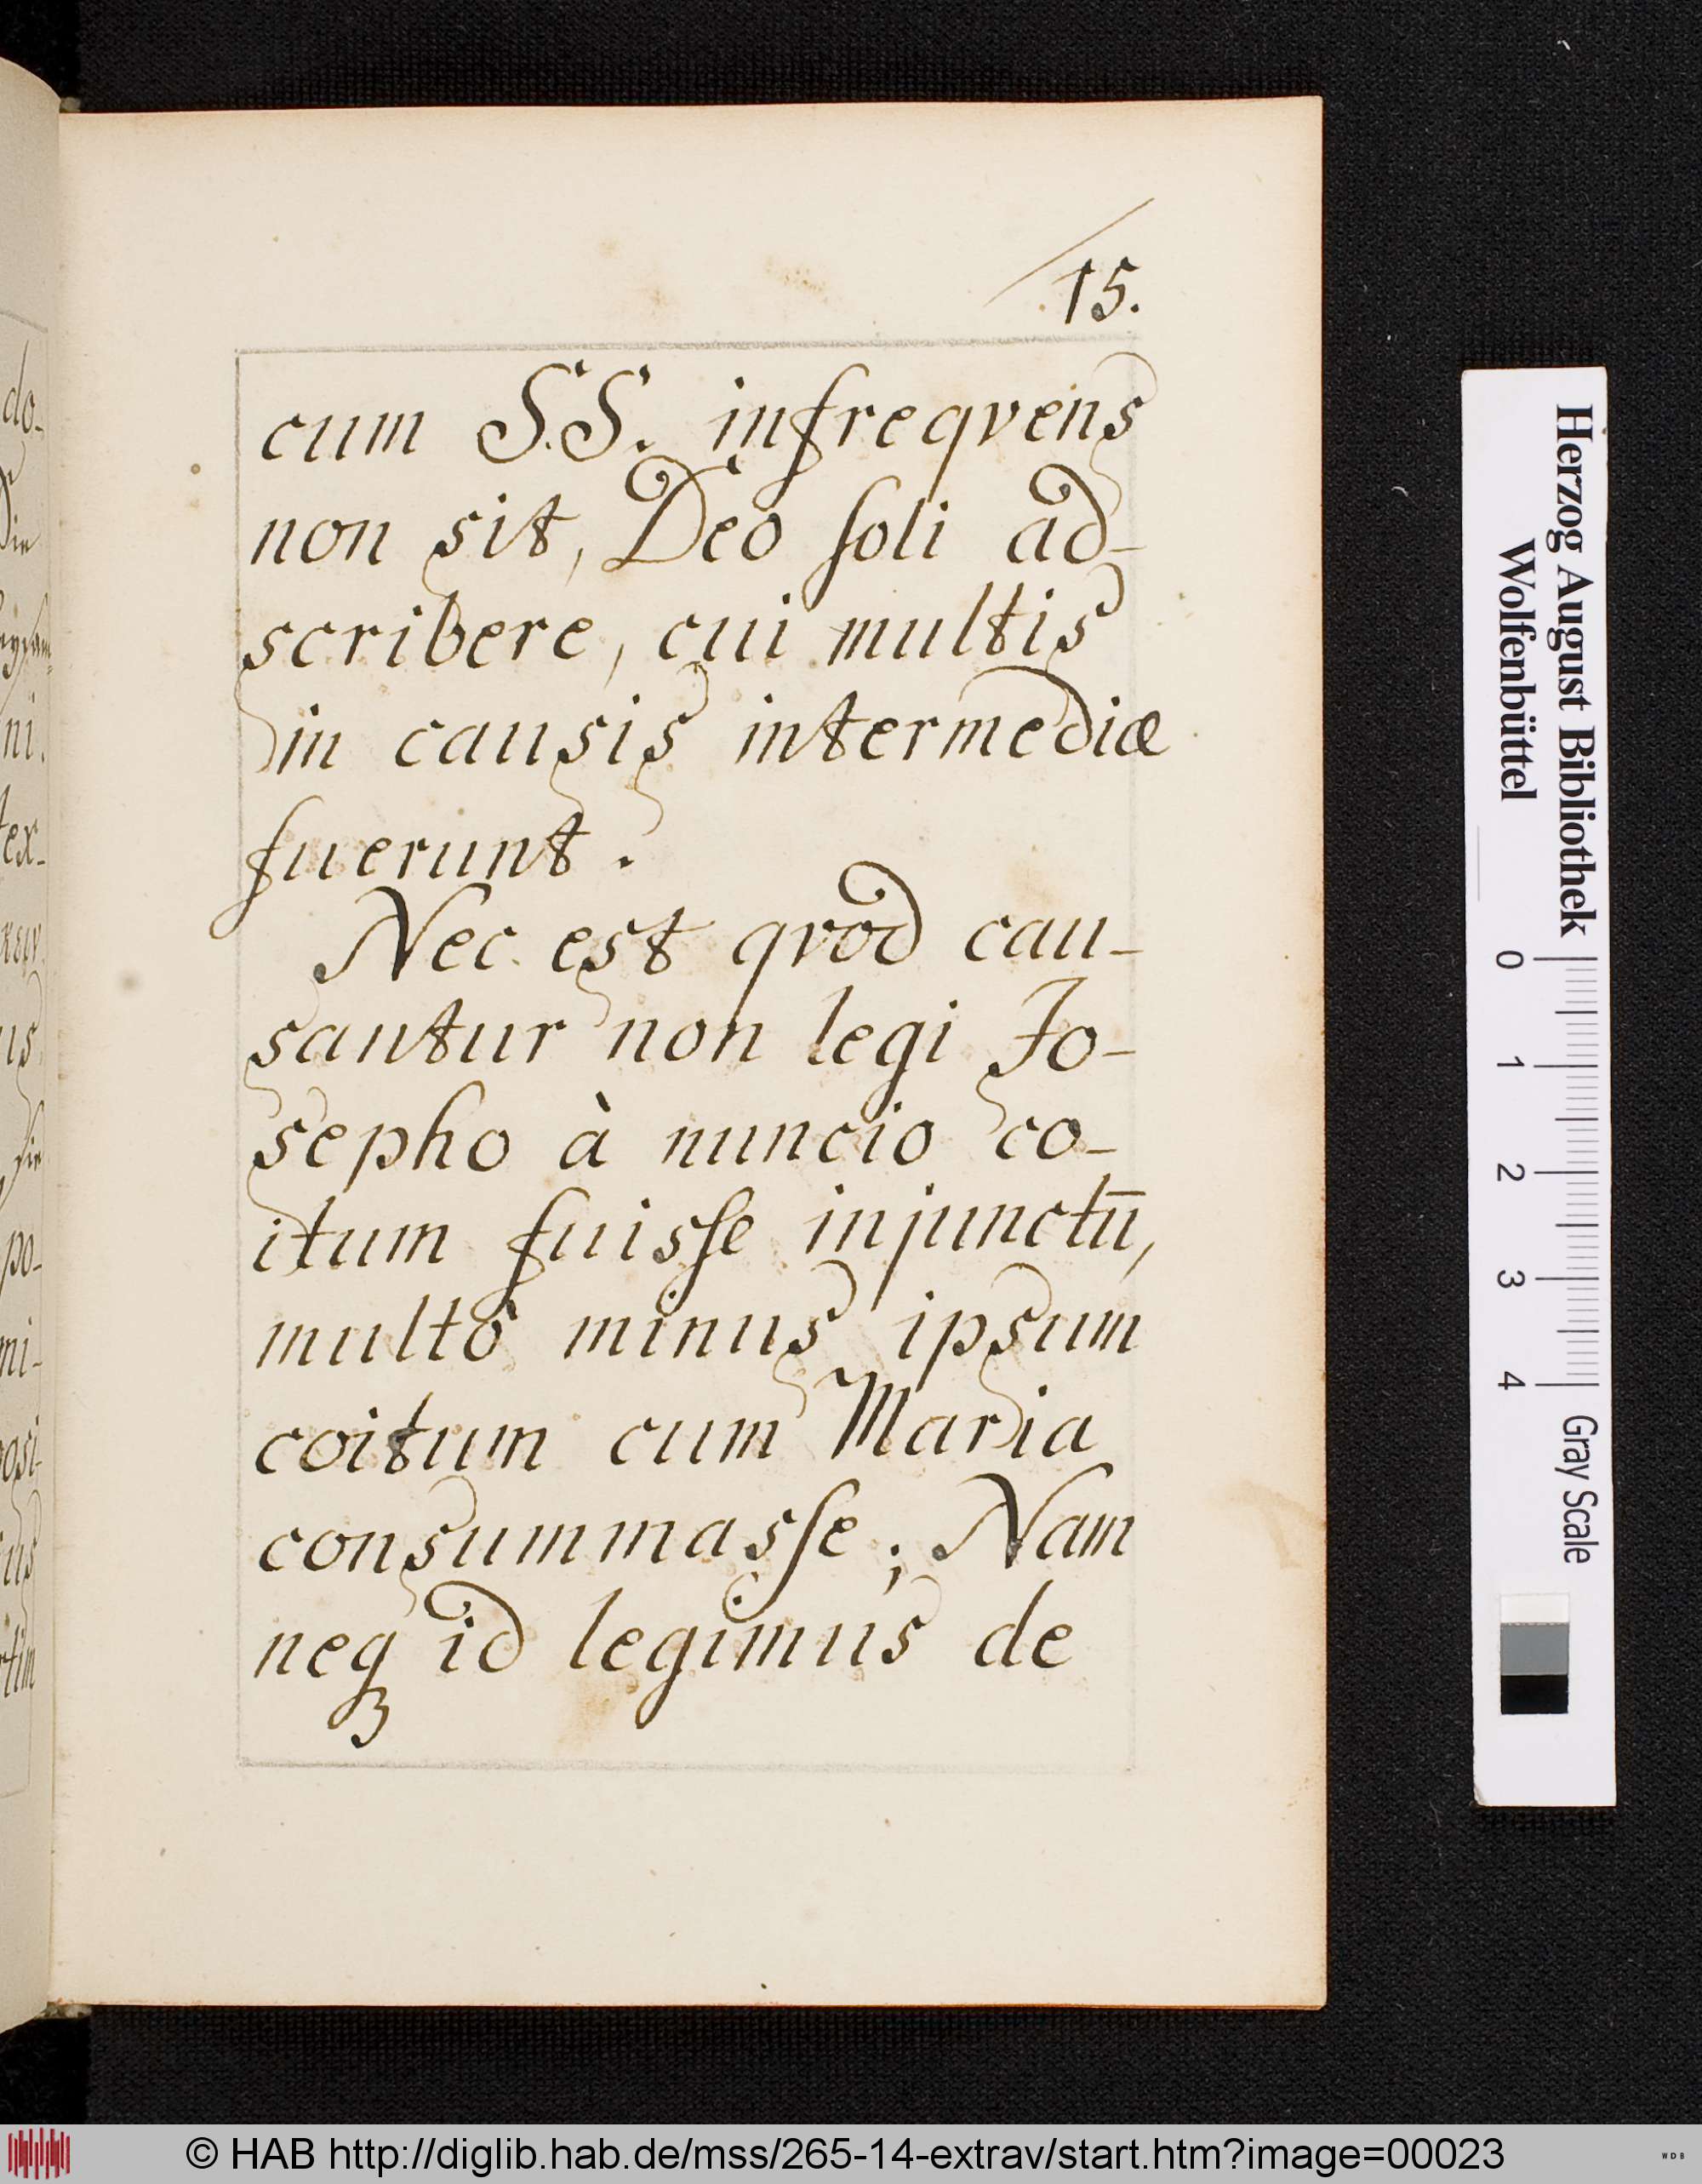 15.
cum S.S. infreqvens
non sit, Deo soli ad-
scribere, cui multis
in causis intermediæ
fuerunt.
Nec est qvod cau-
santur non legi Jo-
sepho à nuncio co-
itum fuisse injunctū,
multò minus ipsum
coitum cum Maria
consummasse; Nam
neqꝫ id legimus de
do-
Die
ni.
tex-
us
sie
po-
mi-
posi-
ius
rtim
Herzog August Bibliothek
Wolfenbüttel
0 1 2 3 4
Gray Scale
© HAB http://diglib.hab.de/mss/265-14-extrav/start.htm?image=00023
WDB